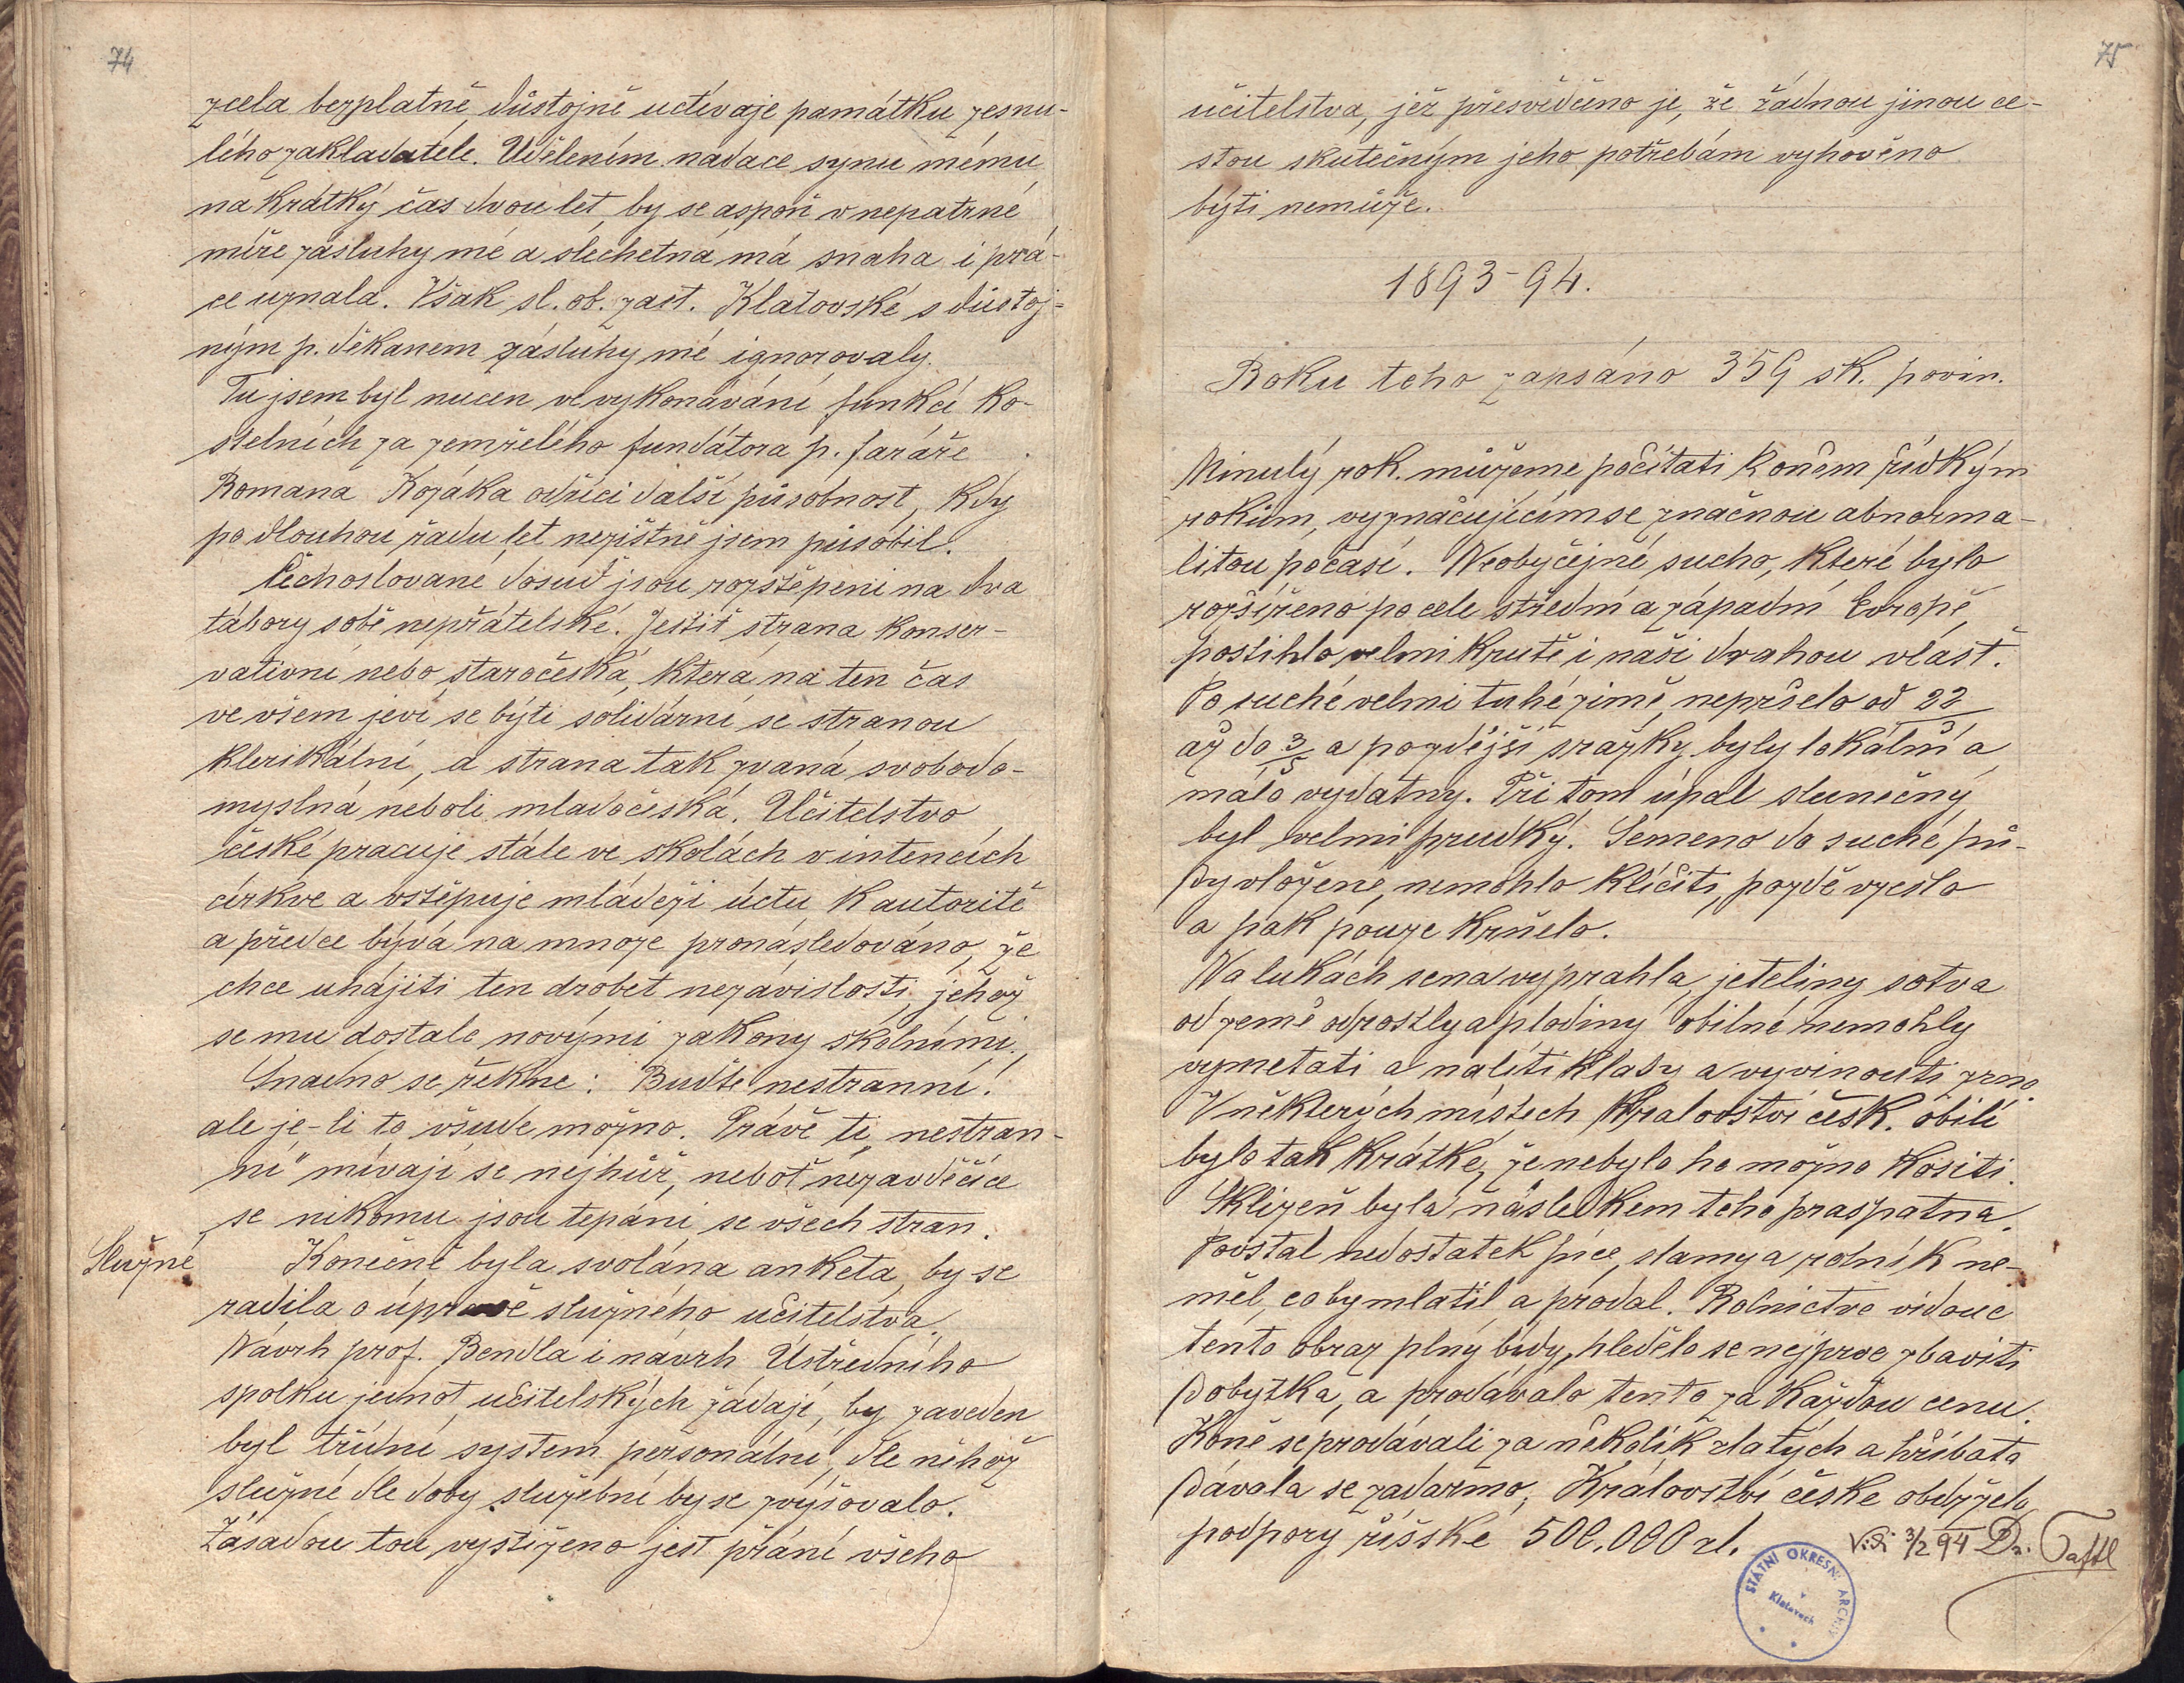 74
zcela bezplatně, důstojně uctívaje památku zesnu-
lého zakladatele. Udělením nadace synu mému
na krátký čas dvou let, by se aspoň v nepatrné
míře zásluhy mé a šlechetná má snaha i prá-
ce uznala. Však sl. ob. zast. Klatovské s důstoj-
ným p. děkanem zásluhy mé ignorovaly.
Tu jsem byl nucen ve vykonávání funkcí ko-
stelních za zemřelého fundátora p. faráře
Romana Kozáka odříci další působnost, kdy
po dlouhou řadu let nezištně jsem působil.
Čechoslované dosud jsou rozštěpeni na dva
tábory sobě nepřátelské. Jestiť strana konser-
vativní nebo staročeská, která na ten čas
ve všem jeví se býti solidární se stranou
klerikální, a strana tak zvaná svobodo-
myslná neboli mladočeská. Učitelstvo
české pracuje stále ve školách v intencích
církve a vštěpuje mládeži úctu k autoritě
a předce bývá na mnoze pronásledováno, že
chce uhájiti ten drobet nezávislosti, jehož
se mu dostalo novými zákony školními.
Snadno se řekne: Buďte nestranní!
ale je-li to všude možno. Právě ti „nestran-
ní" mívají se nejhůř, neboť nezavděčíce
se nikomu jsou tepáni se všech stran.
Služné
Konečně byla svolána anketa, by se
radila o úpravě služného učitelstva.
Návrh prof. Bendla i návrh Ústředního
spolku jednot učitelských žádají, by zaveden
byl třídní system personální, dle něhož
služné dle doby služební by se zvyšovalo.
Zásadou tou vystiženo jest přání všeho
75
učitelstva, jež přesvědčeno je, že žádnou jinou ce-
stou skutečným jeho potřebám vyhověno
býti nemůže.
1893-94.
Roku toho zapsáno 359 šk. povin.
Minulý rok můžeme počítati k oněm řídkým
rokům, vyznačujícím se značnou abnorma-
litou počasí. Neobyčejné sucho, které bylo
rozšířeno po celé střední a západní Evropě,
postihlo velmi krutě i naši drahou vlasť.
Po suché velmi tuhé zimě, nepršelo od 22/3
až do 3/5 a pozdější srážky byly lokální a
málo vydatny. Při tom úpal slunečný
byl velmi prudký. Semeno do suché pů-
dy vložené, nemohlo klíčiti, pozdě vzešlo
a pak pouze krnělo.
Na lukách sena vyprahla, jeteliny sotva
od země odrostly a plodiny obilné nemohly
vymetati a nalíti klasy a vyvinouti zrno.
V některých místech Království česk. obilí
bylo tak krátké, že nebylo ho možno kositi.
Sklizeň byla následkem toho prašpatná.
Povstal nedostatek píce, slamy a rolník ne-
měl, co by mlátil a prodal. Rolnictvo vidouc
tento obraz plný bídy, hledělo se nejprve zbaviti
dobytka, a prodávalo tento za každou cenu.
Koně se prodávali za několik zlatých a hříbata
dávala se zadarmo. Království české obdrželo
podpory říšské 500.000 zl.
Vidi 3/2 94 Dr. Taftl
STÁTNÍ OKRESNÍ ARCHIV
v
Klatovech